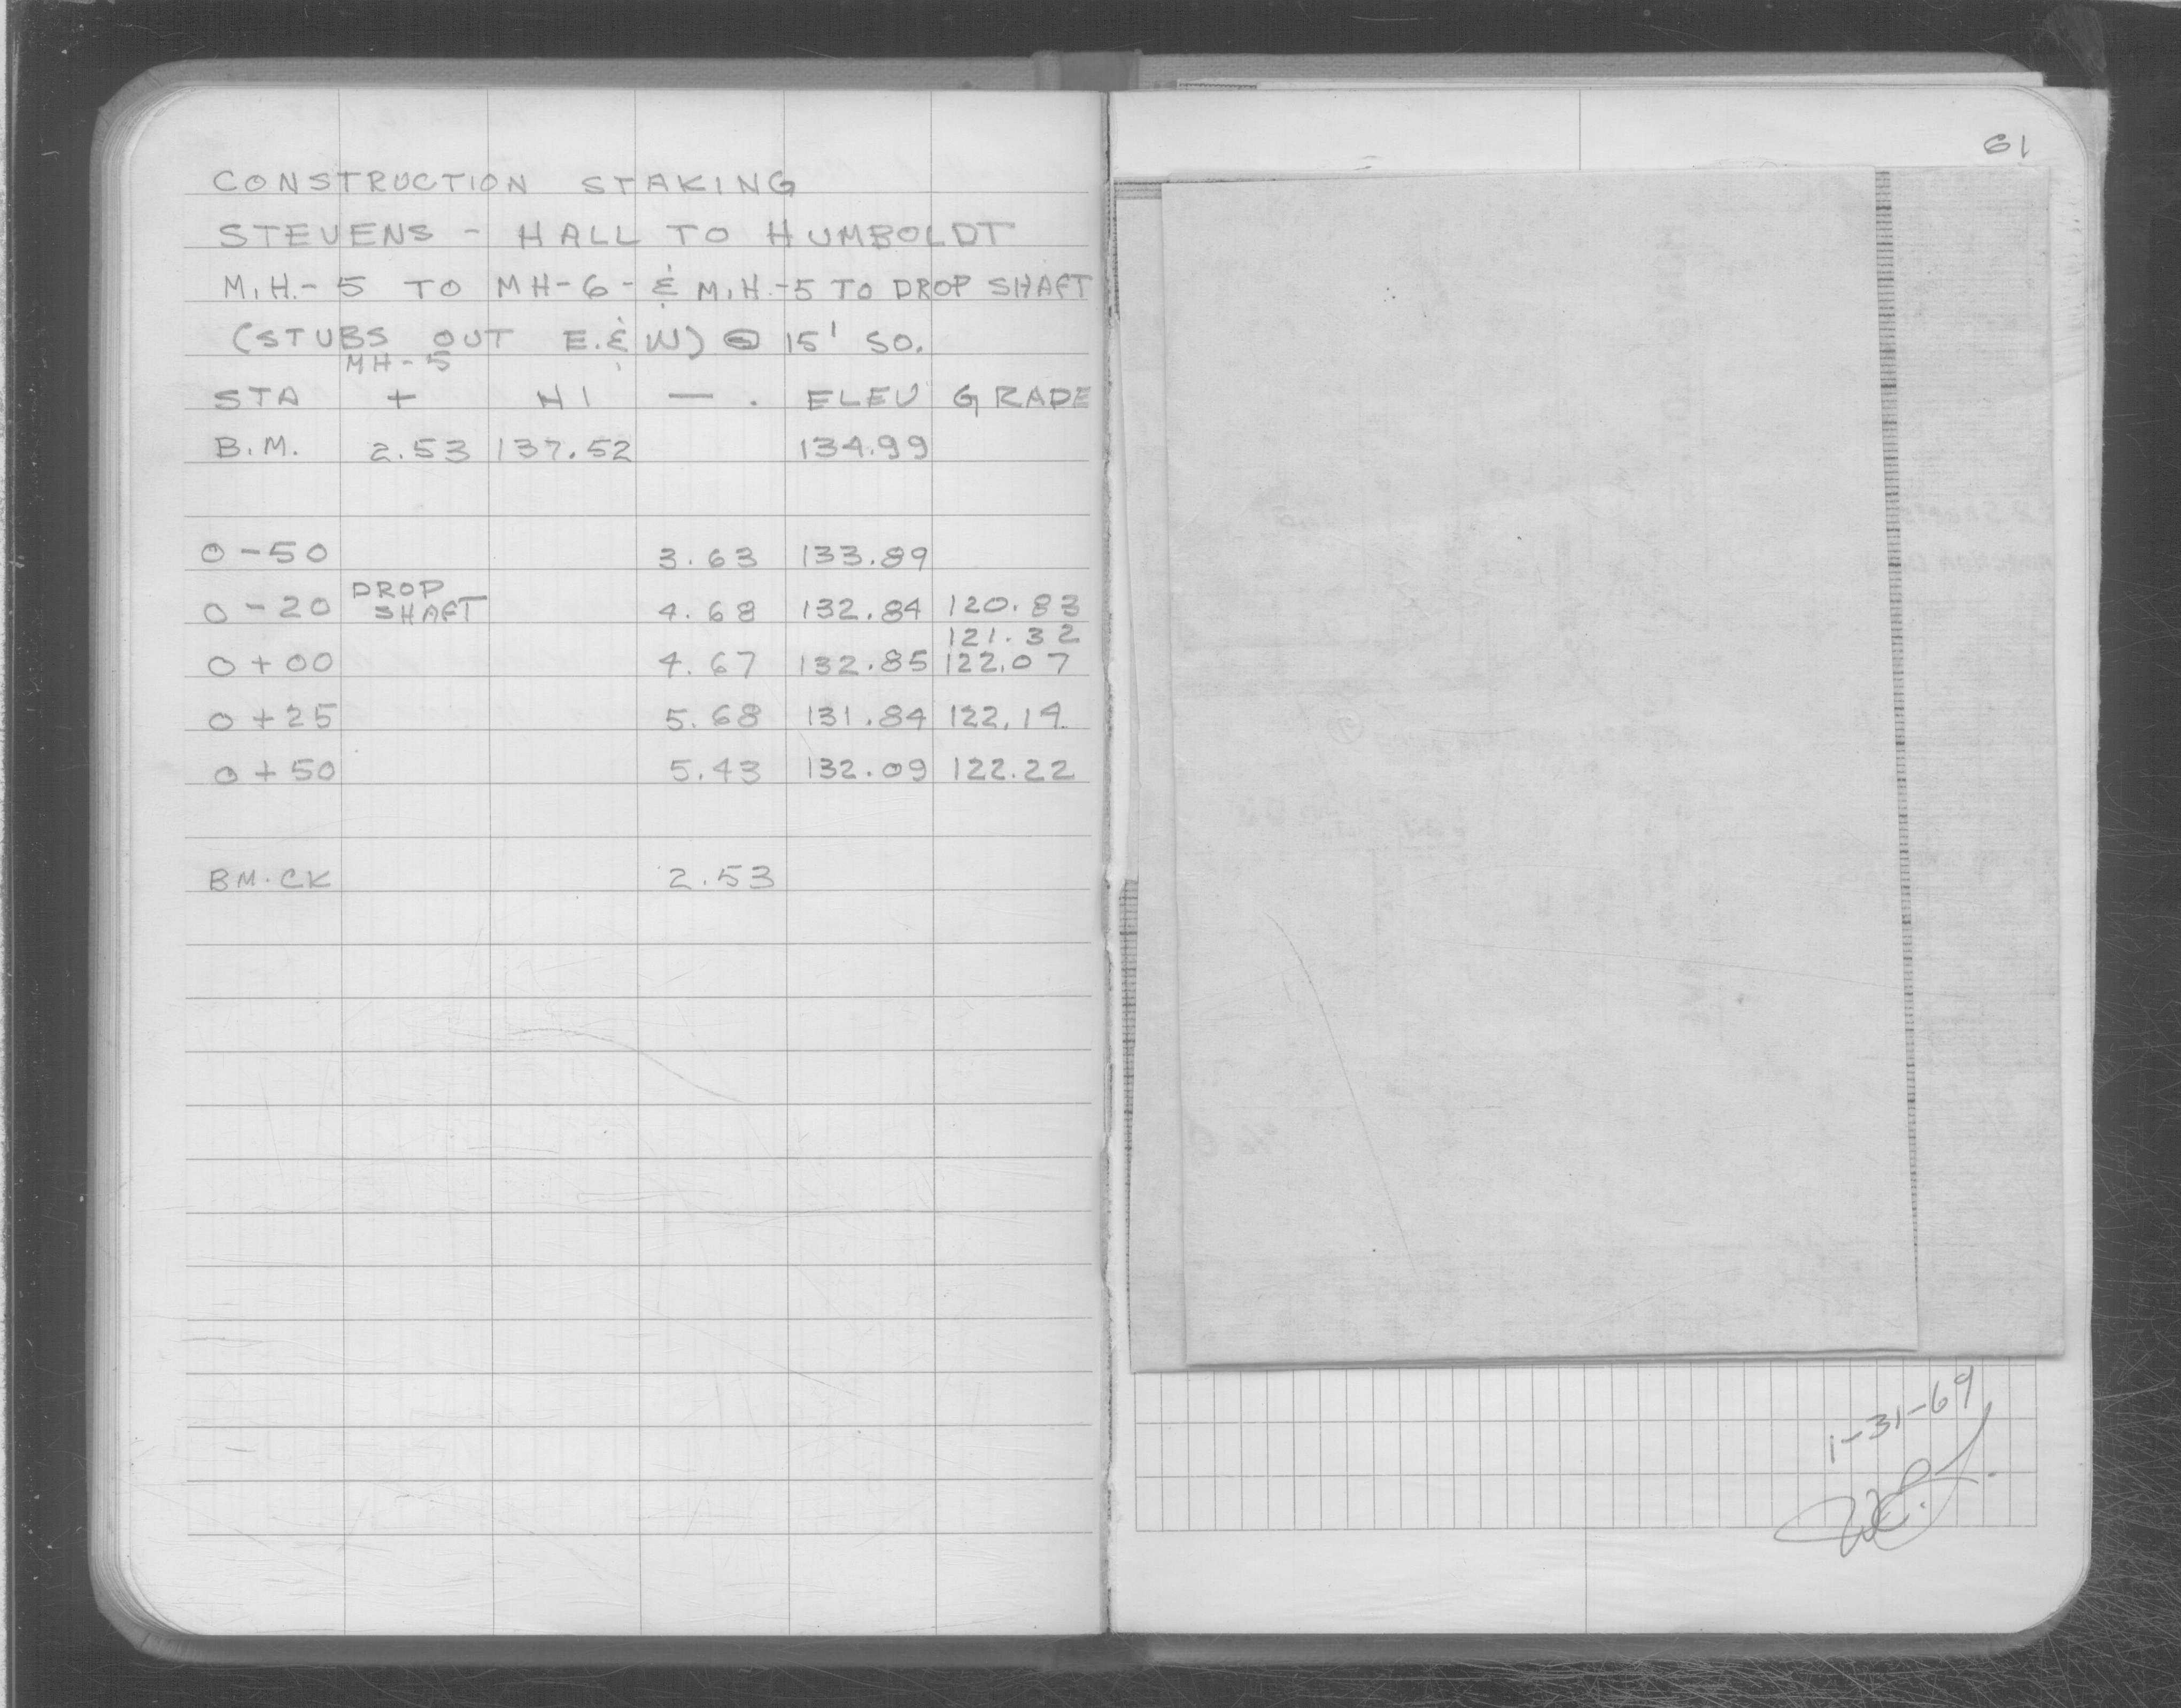 CONSTRUCTION STAKING
STEVENS - HALL TO HUMBOLDT
M.H.-5 TO MH-6- & M.H.-5 TO DROP SHAFT
(STUBS OUT E.& W) @ 15' SO.
MH-5
STA + HI — . ELEV GRADE
B.M. 2.53 137.52 134.99
0-50 3.63 133.89
DROP
0-20 SHAFT 4.68 132.84 120.83
121.32
0+00 4.67 132.85 122.07
0+25 5.68 131.84 122.14
0+50 5.43 132.09 122.22
BM.CK 2.53
61
1-31-69